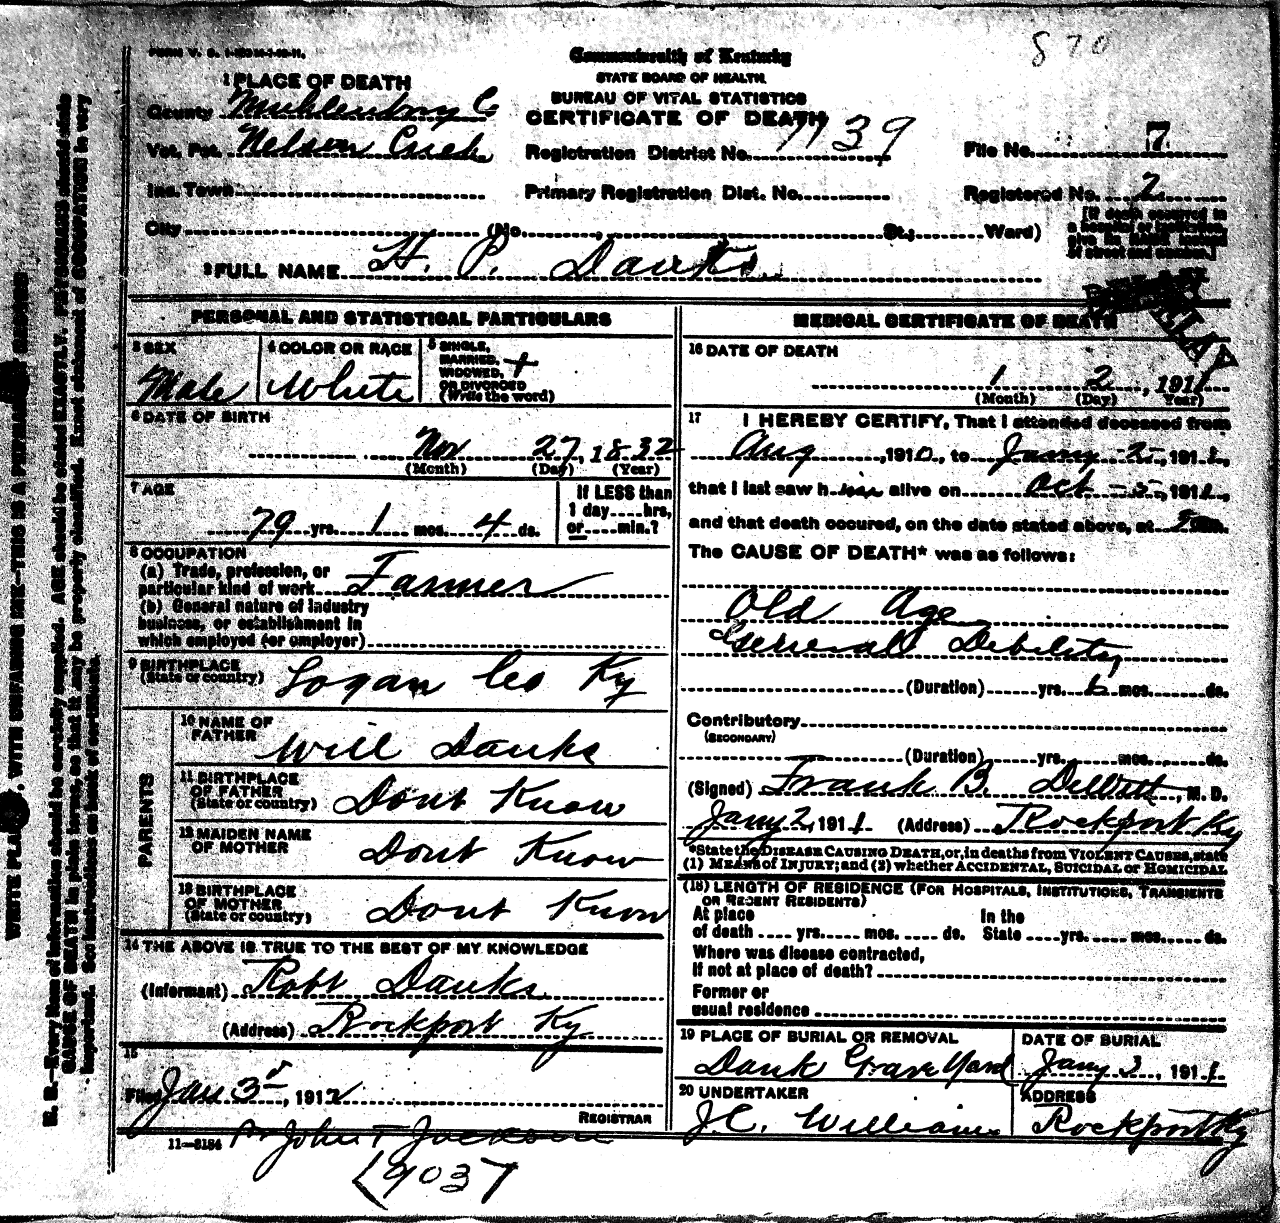 870
FORM V. S.
Commonwealth of Kentucky
STATE BOARD OF HEALTH
BUREAU OF VITAL STATISTICS
CERTIFICATE OF DEATH
1 PLACE OF DEATH
County Muhlenburg Co
Vot. Pct. Nelson Creek
Registration District No. 1139
File No. 7
Inc. Town
Primary Registration Dist. No.
Registered No. 2
City (No. , St.; Ward)
[If death occurred in
a hospital or institution,
give its NAME instead
of street and number.]
2 FULL NAME H. P. Danks
PERSONAL AND STATISTICAL PARTICULARS
3 SEX
Male
4 COLOR OR RACE
White
5 SINGLE,
MARRIED,
WIDOWED,
OR DIVORCED
(Write the word)
6 DATE OF BIRTH
Nov 27, 1832
(Month) (Day) (Year)
7 AGE
79 yrs. 1 mos. 4 ds.
If LESS than
1 day....hrs,
or....min.?
8 OCCUPATION
(a) Trade, profession, or
particular kind of work Farmer
(b) General nature of industry
business, or establishment in
which employed (or employer)
9 BIRTHPLACE
(State or country) Logan Co Ky
PARENTS
10 NAME OF
FATHER Will Danks
11 BIRTHPLACE
OF FATHER
(State or country) Dont Know
12 MAIDEN NAME
OF MOTHER Dont Know
13 BIRTHPLACE
OF MOTHER
(State or country) Dont Know
14 THE ABOVE IS TRUE TO THE BEST OF MY KNOWLEDGE
(Informant) Robt Danks
(Address) Rockport Ky
15
Filed Jan 3, 1912
REGISTRAR
11-8184 John T Jackson
19037
MEDICAL CERTIFICATE OF DEATH
16 DATE OF DEATH
1 2, 1911
(Month) (Day) Year)
17 I HEREBY CERTIFY, That I attended deceased from
Aug, 1910, to Jany 2, 1911,
that I last saw him alive on Oct, 1911,
and that death occured, on the date stated above, at
The CAUSE OF DEATH* was as follows:
Old Age
General Debility
(Duration) yrs. 6 mos. ds.
Contributory
(SECONDARY)
(Duration) yrs. mos. ds.
(Signed) Frank B. DeWitt, M. D.
Jany 2, 1911 (Address) Rockport Ky
*State the DISEASE CAUSING DEATH, or, in deaths from VIOLENT CAUSES, state
(1) MEANS of INJURY; and (2) whether ACCIDENTAL, SUICIDAL or HOMICIDAL
(18) LENGTH OF RESIDENCE (FOR HOSPITALS, INSTITUTIONS, TRANSIENTS
OR RECENT RESIDENTS)
At place
of death .... yrs. .... mos. .... ds.
In the
State .... yrs. .... mos. .... ds.
Where was disease contracted,
If not at place of death?
Former or
usual residence
19 PLACE OF BURIAL OR REMOVAL
Dank Grave Yard
DATE OF BURIAL
Jany 3, 1911
20 UNDERTAKER
J.C. Williams
ADDRESS
Rockport Ky
WRITE PLAINLY, WITH UNFADING INK—THIS IS A PERMANENT RECORD
N. B.—Every item of information should be carefully supplied. AGE should be stated EXACTLY. PHYSICIANS should state
CAUSE OF DEATH in plain terms, so that it may be properly classified. Exact statement of OCCUPATION is very
important. See instructions on back of certificate.